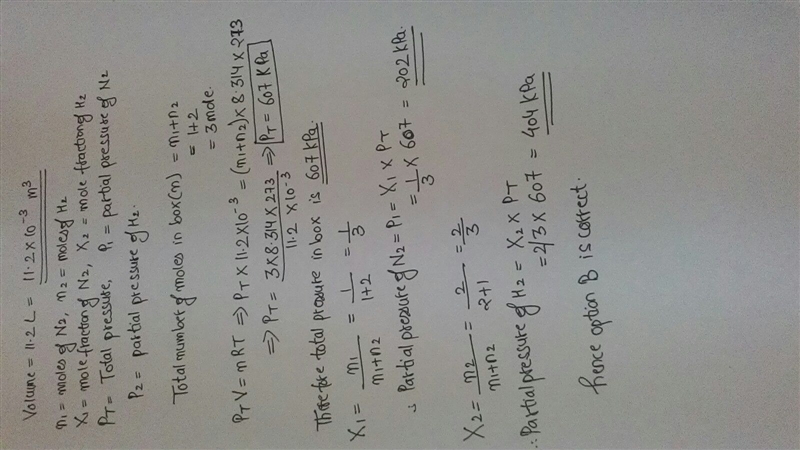 Volume = 11.2 L = 11.2 × 10⁻³ m³
n₁ = moles of N₂, n₂ = moles of H₂
X₁ = mole fraction of N₂, X₂ = mole fraction of H₂
P_T = Total pressure, P₁ = partial pressure of N₂
P₂ = partial pressure of H₂.
Total number of moles in box (n) = n₁+n₂
= 1+2
= 3 mole.
P_T V = nRT ⇒ P_T × 11.2 × 10⁻³ = (n₁+n₂) × 8.314 × 273
⇒ P_T = 3 × 8.314 × 273 / 11.2 × 10⁻³ ⇒ P_T = 607 KPa
Therefore total pressure in box is 607 kPa.
X₁ = n₁ / n₁+n₂ = 1 / 1+2 = 1/3
∴ Partial pressure of N₂ = P₁ = X₁ × P_T
= 1/3 × 607 = 202 KPa
X₂ = n₂ / n₁+n₂ = 2 / 2+1 = 2/3
∴ Partial pressure of H₂ = X₂ × P_T
= 2/3 × 607 = 404 KPa
hence option B is correct.